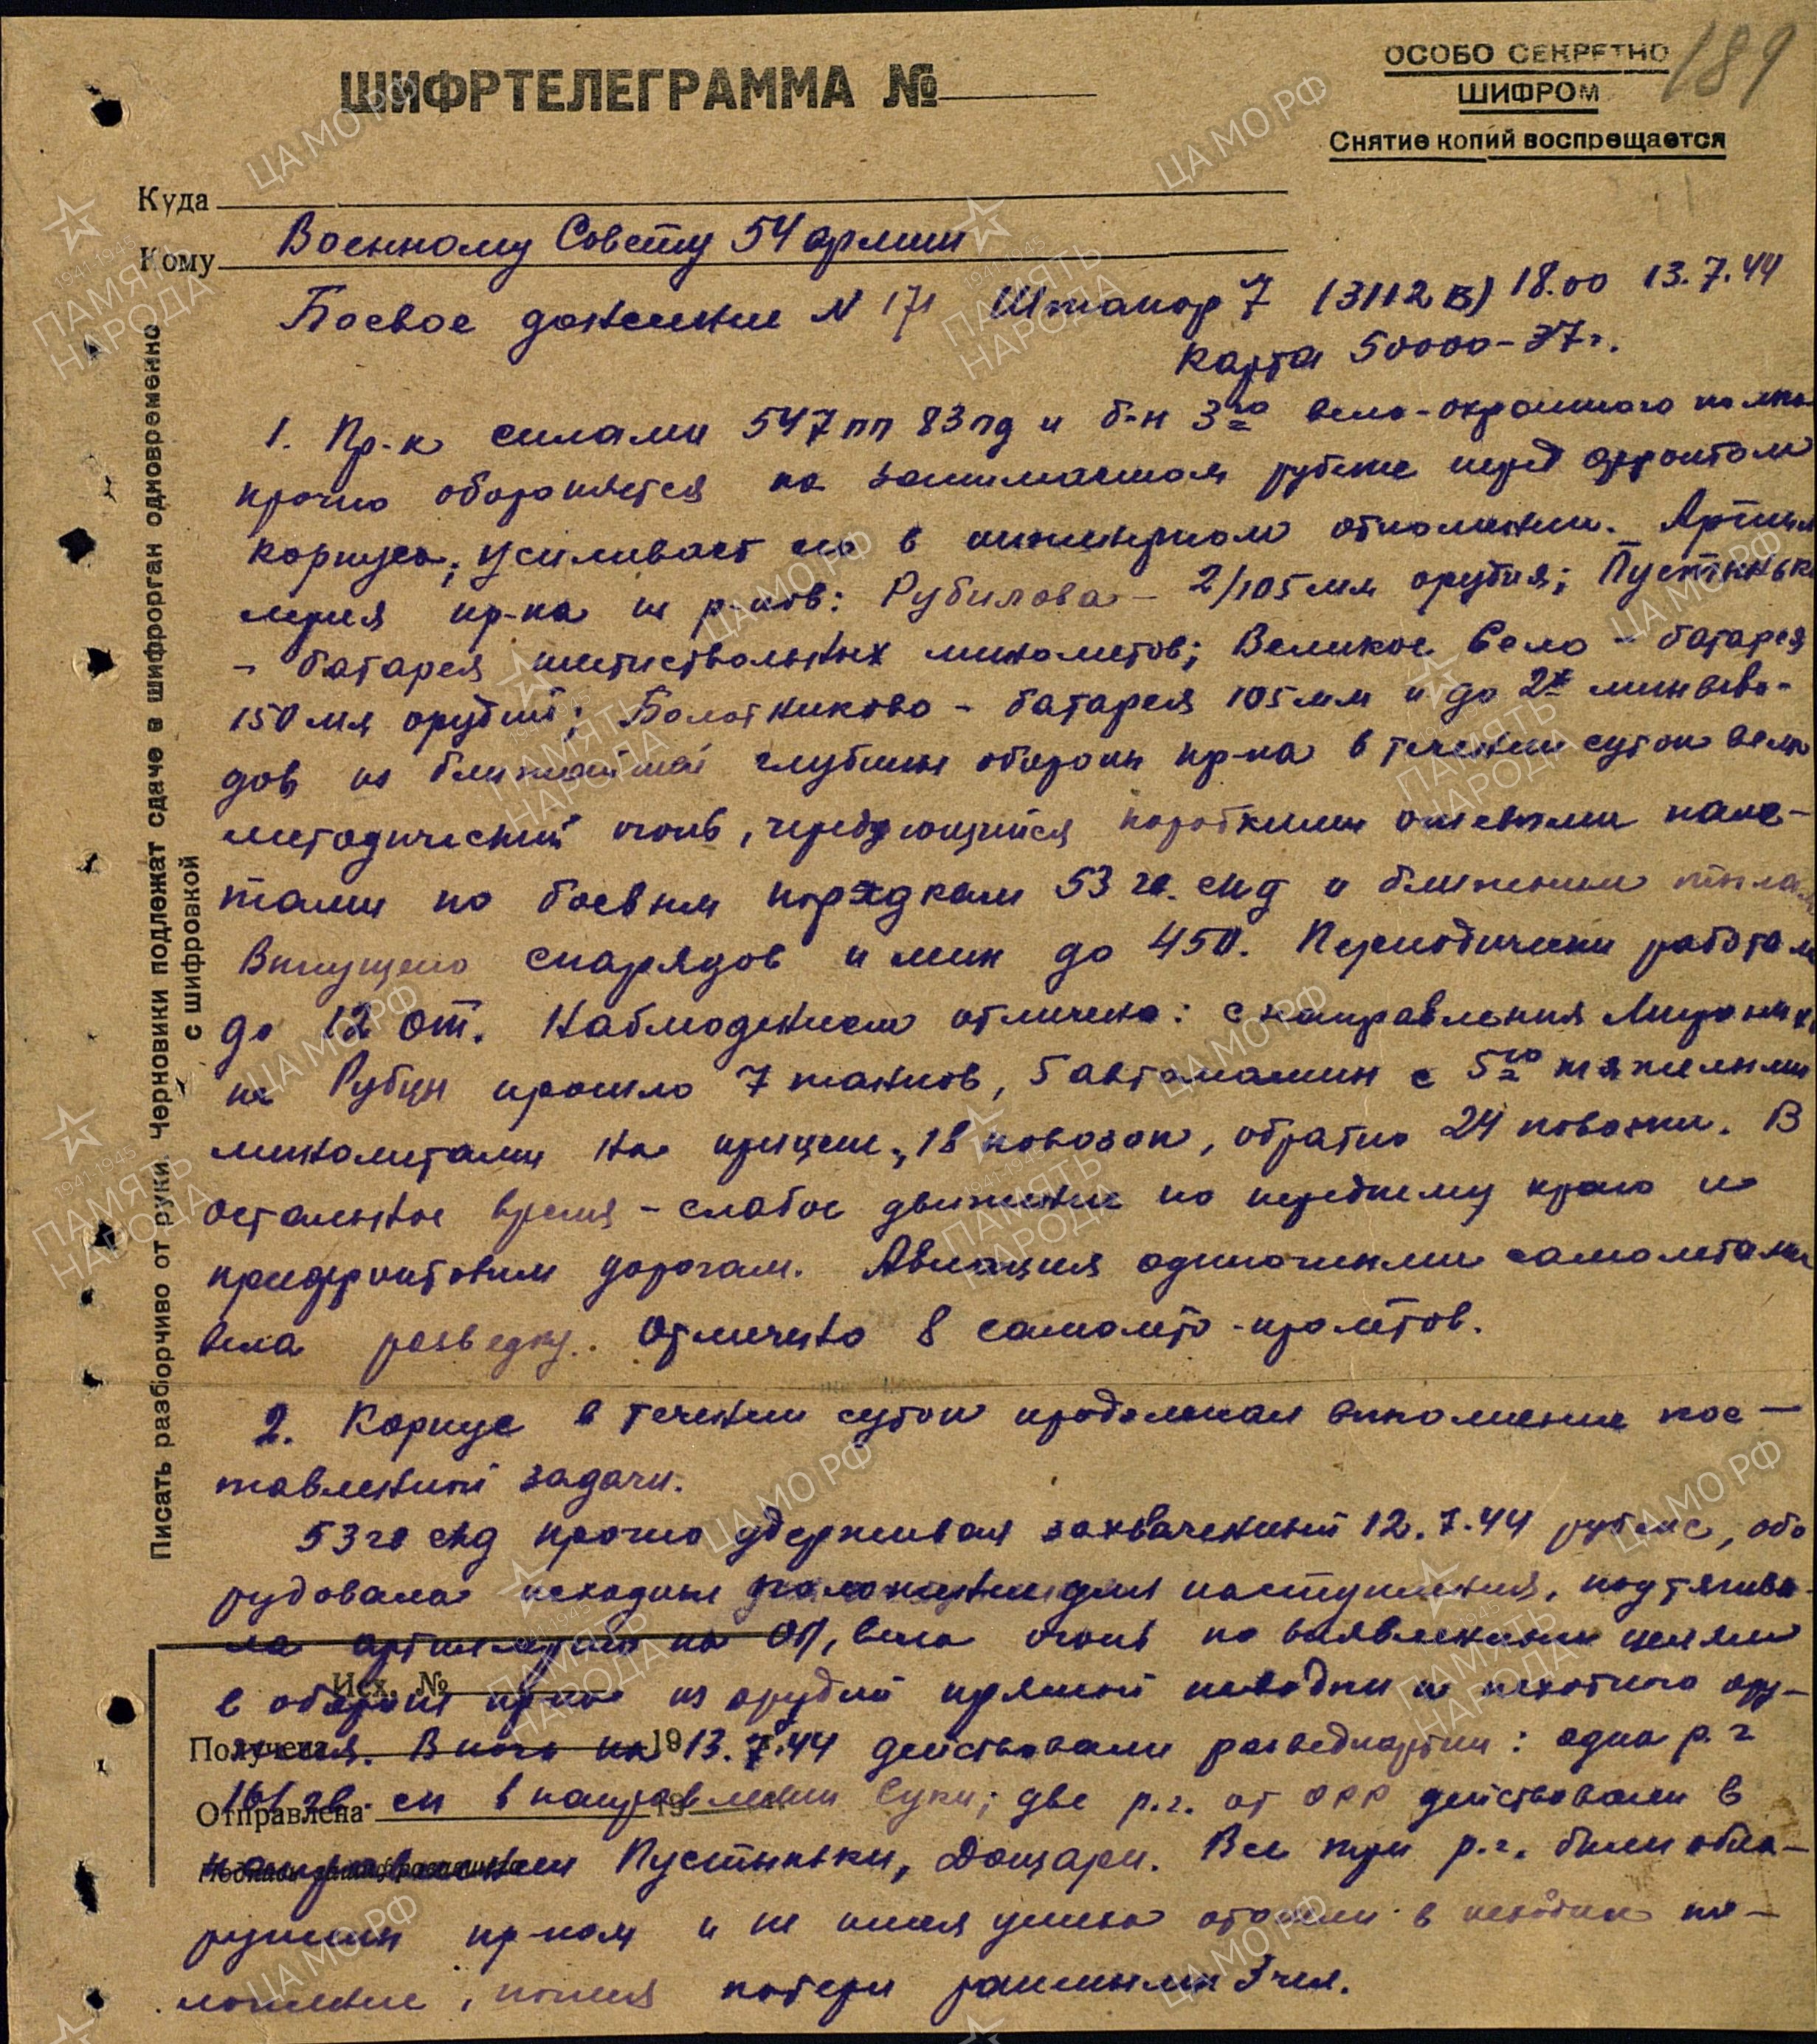 189
ОСОБО СЕКРЕТНО
ШИФРОМ
Снятие копий воспрещается
ШИФРТЕЛЕГРАММА №
Куда
Кому Военному Совету 54 армии
Боевое донесение N 171 Штакор 7 (3112 В) 18.00 13.7.44
Карта 50000-37г.
1. Пр-к силами 547 пп 83 пд и б-н 3го вело-охранного полка
прочно обороняется на занимаемом рубеже перед фронтом
корпуса, усиливает его в инженерном отношении. Артил
лерия пр-ка из р-нов: Рубилова - 2/105 мм орудия; Пустыньк
- батарея шестиствольных минометов; Великое Село - батарея
150 мм орудий; Болотниково - батарея 105 мм и до 2х минвзво-
дов из ближайшей глубины обороны пр-ка в течении суток вели
методический огонь, чередующийся короткими огневыми нале-
тами по боевым порядкам 53 гв. сид и ближним тыла
Выпущено снарядов и мин до 450. Периодически работали
до 12 от. Наблюдением отмечено: с направления
на Рубцы прошло 7 танков, 5 автомашин с 5ю тяжелыми
минометами на прицепе, 18 повозок, обратно 24 повозки. В
остальное время - слабое движение по переднему краю и
прифронтовым дорогам. Авиация одиночными самолетами
вела разведку. Отмечено 8 самолето-пролетов.
2. Корпус в течении суток продолжал выполнение пос-
тавленной задачи.
53 гв сид прочно удерживая захваченный 12.7.44 рубеж, обо
рудовала исходные положения для наступления, подтягива
ла артиллерию на ОП, вела огонь по выявленным целям
в обороне пр-ка из орудий прямой наводки и пехотного ору-
жия. В ночь на 13.7.44 действовали разведпартии: одна р.г
161 гв. сп в направлении Суки; две р.г. от ОРР действовали в
направлении Пустыньки, Дощари. Все три р.г. были обна-
ружены пр-ком и не имея успеха отошли в исходное по-
ложение, понеся потери ранеными 3 чел.
Исх. №
Получена 19
Отправлена 19
Писать разборчиво от руки. Черновики подлежат сдаче в шифрорган одновременно
с шифровкой
ЦАМО РФ
1941-1945
ПАМЯТЬ
НАРОДА